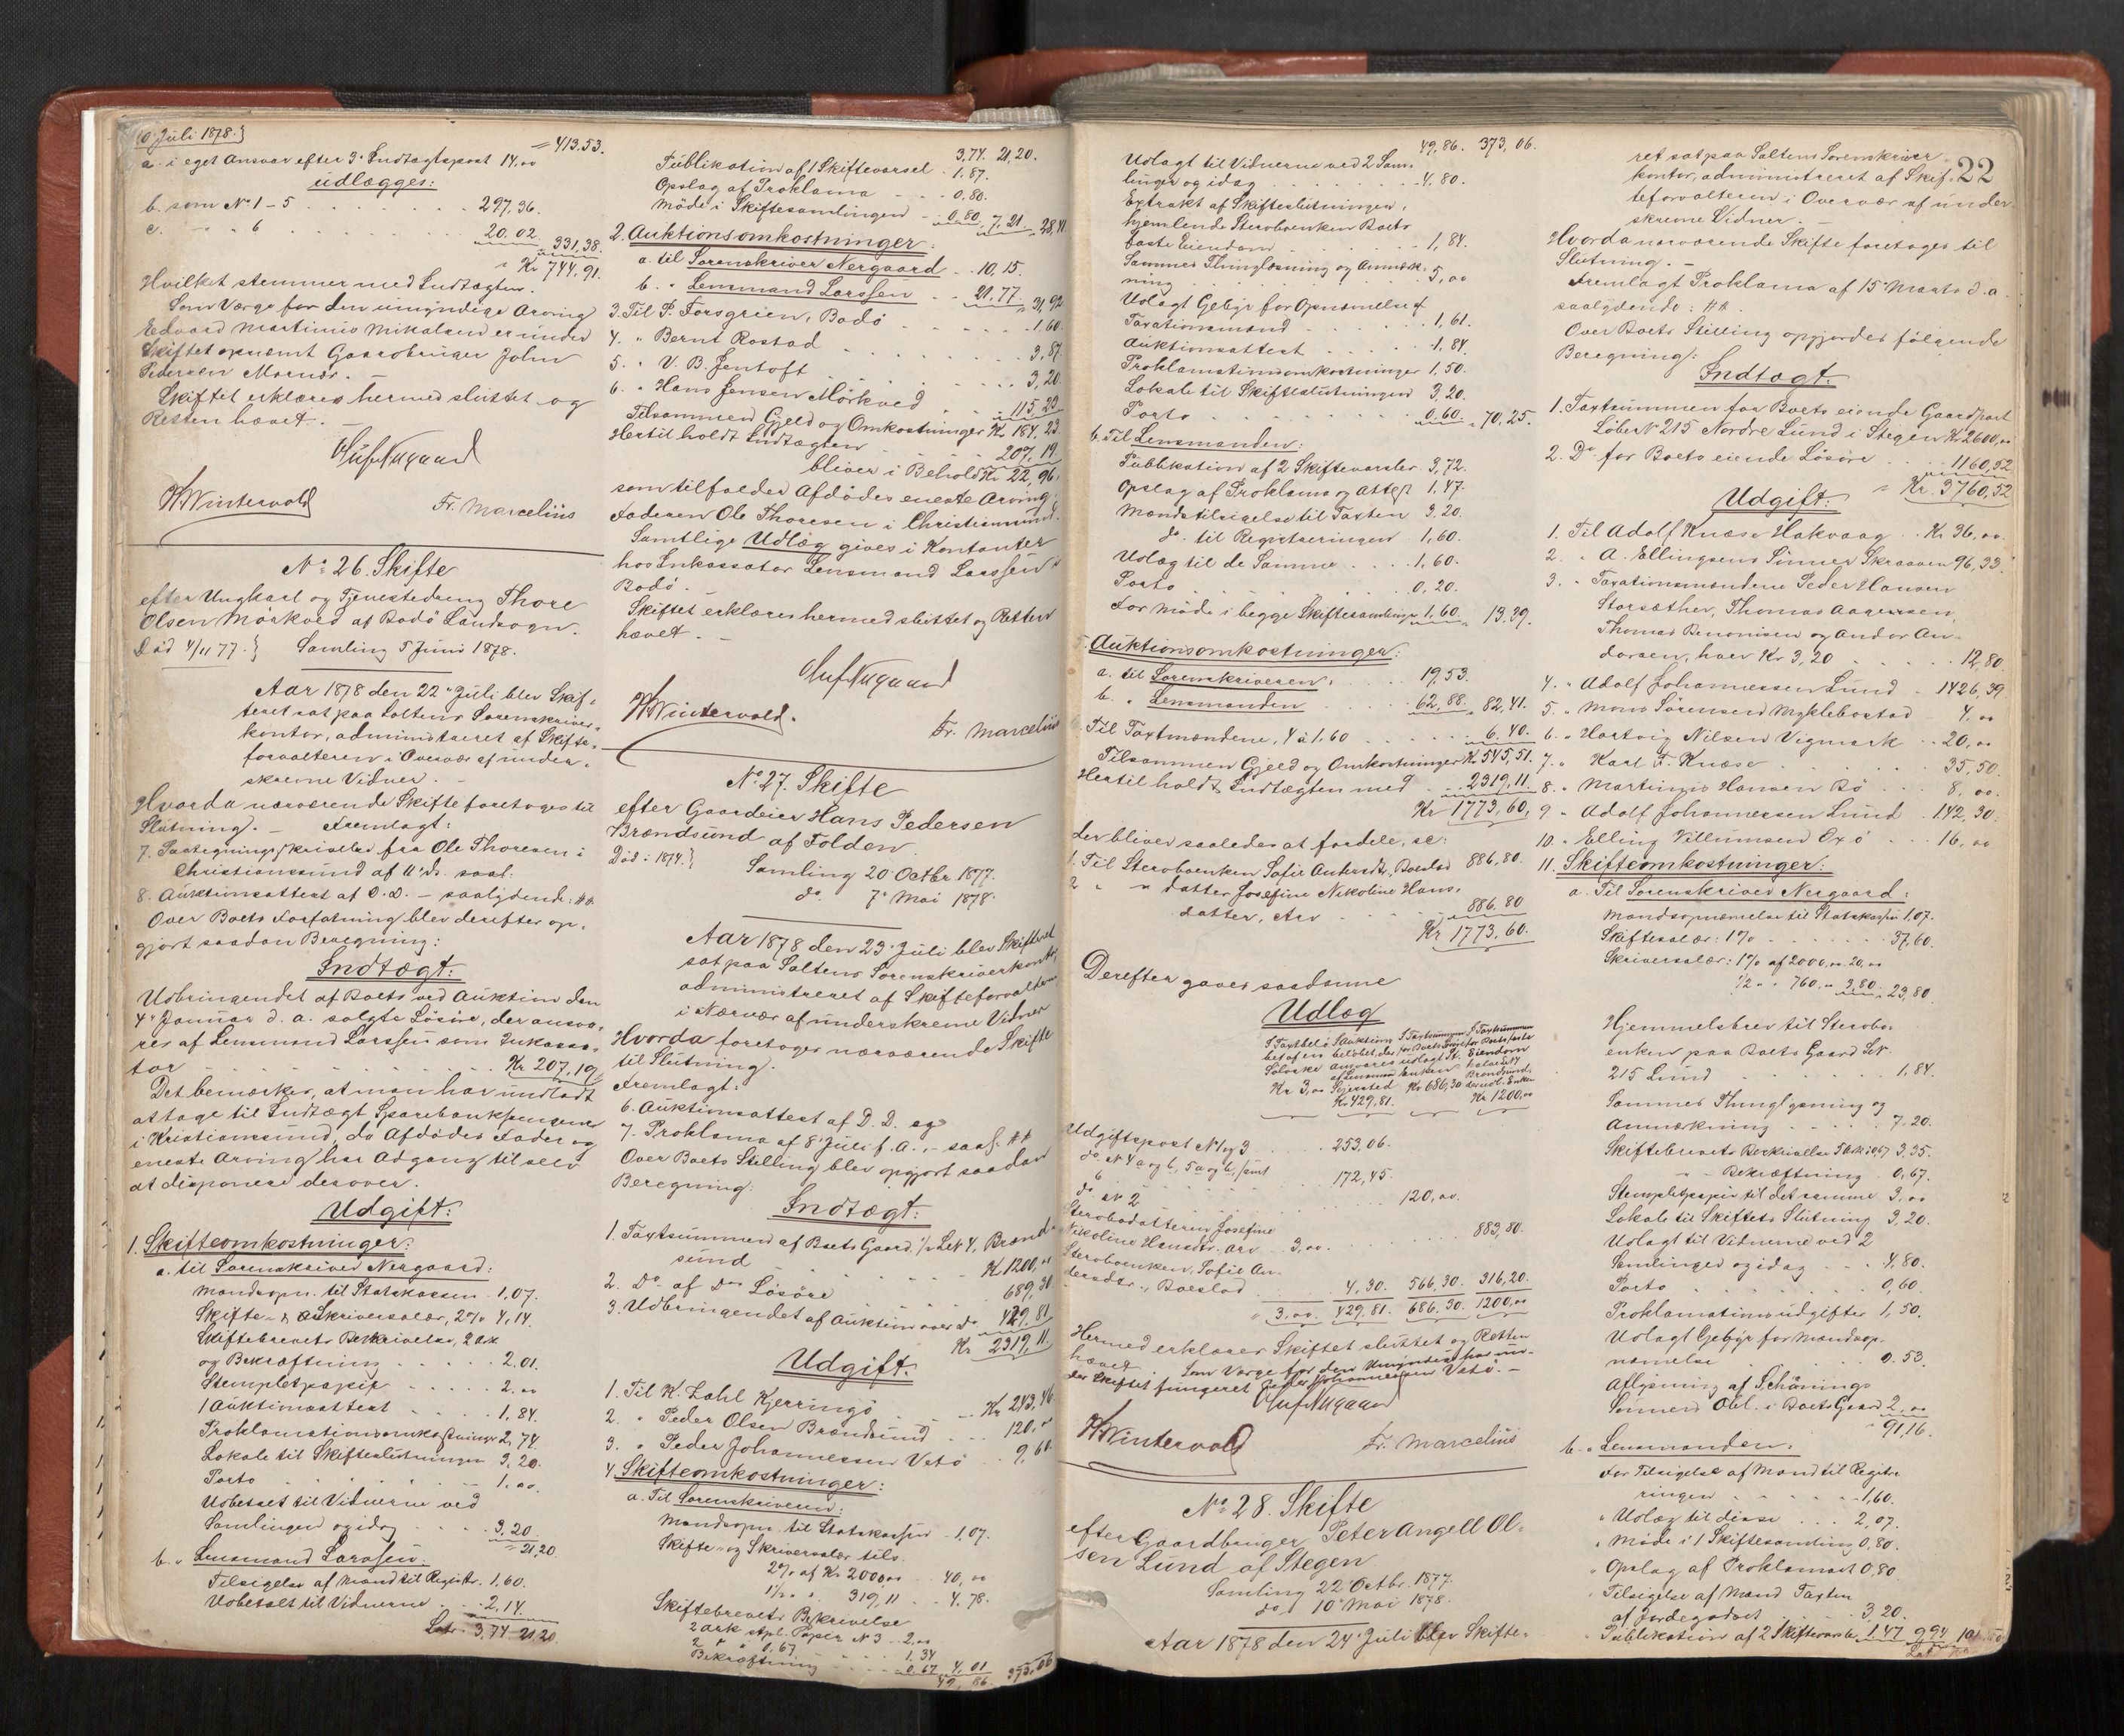 10 Juli 1878.}
= 413.53.
a. i eget Ansvar efter 3. Indtægtspost 14,00
udlægges:
b. som No 1-5 . . . . . . 297,36.
c. " " 6 . . . . . . 20.02.
" 331,38.
" Kr 744,91.
Hvilket stemmer med Indtægten.
Som Værge for den umyndige Arving
Edvard Martinus Mikalsen er under
Skiftet opnæmt Gaardbruger John
Pedersen Mornæs. -
Skiftet erklæres hermed sluttet og
Retten hævet. -
H Wintervold
Fr. Marcelius
No 26. Skifte
efter Ungkarl og Tjenestedreng Thore
Olsen Mörkved af Bodö Landsogn.
Död 4/11 77.} Samling 5 Juni 1878.
Aar 1878 den 22 Juli blev Skif-
teret sat paa Saltens Sorenskriver-
kontor, administreret af Skifte-
forvalteren i Overvær af under-
skrevne Vidner. -
Hvorda nærværende Skifte foretoges til
Slutning. - Fremlagt:
7. Paategningsskrivelse fra Ole Thoresen i
Christianssund af 11 ds. saal:
8. Auktionsattest af D. D. - saalydende: ##
Over Boets Forfatning blev derefter op-
gjort saadan Beregning:
Indtægt:
Udbringendet af Boets ved Auktion den
4 Januar d. a. solgte Lösöre, der ansva-
res af Lensmand Larssen som Inkassa-
tor . . . . . . Kr. 207,19.
Det bemærkes, at man har undladt
at tage til Indtægt Sparebankpengene
i Kristianssund, da Afdödes Fader og
eneste Arving har Adgang til selv
at disponere derover.
Udgift:
1. Skifteomkostninger:
a. til Sorenskriver Nergaard:
Mandsopn. til Statskassen . 1,07.
Skifte- og Skriversalær, 2% 4,14.
Skiftebrevets Beskrivelse, 2 ark
og Bekræftning . . . . . 2.01.
Stempletpapir . . . . . 2.00
1 Auktionsattest . . . . 1,84.
Proklamationsomkostninger 2,74.
Lokale til Skifteslutningen 3,20.
Porto . . . . . . 1.00.
Udbetalt til Vidnerne ved
Samlingen og idag . . . . 3,20
= 21,20.
b. " Lensmand Larssen.
Tilsigelse af Mænd til Registr. 1,60.
Udbetalt til Vidnerne . . . 2,14.
Lats. 3,74 21,20.
3,74. 21,20.
Publikation af 1 Skiftevarsel . 1,87.
Opslag af Proklama . . . 0,80.
Möde i Skiftesamlingen . . 0,80. 7,21. 28,41
2. Auktionsomkostninger:
a. til Sorenskriver Nergaard . . 10,15.
b. " Lensmand Larssen . . . 21.77. " 31,92
3. Til P. Forsgren, Bodö . . . . . 1,60.
4. " Bernt Rostad . . . . . 3,87
5. " V. B. Jentoft . . . . . 3,20
6. " Hans Jensen Mörkved . . 115,23
Tilsammen Gjeld og Omkostninger Kr 184,23.
Hertil holdt Indtægten . . . . 207,19
bliver i Behold Kr 22,96,
som tilfalder Afdödes eneste Arving,
Faderen Ole Thoresen i Christianssund.
Samtlige Udlæg gives i Kontanter
hos Inkassator Lensmand Larssen i
Bodö.
Skiftet erklæres hermed sluttet og Retten
hævet. -
H Wintervold.
Fr. Marcelius
No 27. Skifte
efter Gaardeier Hans Pedersen
Brændsund af Folden
Död: 1874.}
Samling 20 Octbr. 1877.
do 7 Mai 1878.
Aar 1878 den 23 Juli blev Skifteret
sat paa Saltens Sorenskriverkontor,
administreret af Skifteforvalteren
i Nærvær af underskrevne Vidner
Hvorda foretoges nærværende Skifte
til Slutning.
Fremlagt:
6. Auktionsattest af D. D. og
7. Proklama af 8 Juli f. A., - saal: ##
Over Boets Stilling blev opgjort saadan
Beregning:
Indtægt:
1. Taxtsummen af Boets Gaard, Lnr 4, Brænd-
sund . . . . . . Kr 1200,00
2. Do af Do Lösöre . . . . . 689,30.
3. Udbringendet af Auktion over Do 429,81
Kr 2319,11.
Udgift.
1. Til K. Zahl Kjerringö . . . Kr 243,46
2. " Peder Olsen Brændsund . . . 120,00
3. " Peder Johannessen Vatö . . 9,60
4. Skifteomkostninger:
a. Til Sorenskriveren:
Mandsopn. til Statskassen . 1,07.
Skifte- og Skriversalær tils.
2% af Kr 2000,00 . . 40,00
1½ " " 319,11 . . 4.78.
Skiftebrevets Beskrivelse
2 ark stpl. Papir No 3 . . 2,00
2 " " 0,67 . . . 1,34
Bekræftning . . . 0,67 4,01
49,86 373,06
49,86. 373,06.
Udlagt til Vidnerne ved 2 Sam-
linger og idag . . . . . 4,80.
Extrakt af Skifteslutningen,
hjemlende Sterboenken Boets
faste Eiendom . . . . 1,84.
Sammes Thinglæsning og Anmærk-
ning . . . . . 5,00
Udlagt Gebyr for Opnævnelse af
Taxationsmænd . . . . 1,61.
Auktionsattest . . . . . 1,84.
Proklamationsomkostninger 1,50.
Lokale til Skifteslutningen 3,20.
Porto . . . . . . 0,60. " 70,25.
b. Til Lensmanden:
Publikation af 2 Skiftevarsler 3,72.
Opslag af Proklama og Attest 1,47.
Mændstilsigelse til Taxten 3.20.
do. til Registreringen . 1,60.
Udlæg til de Samme . . . 1,60.
Porto . . . . . 0,20.
For Möde i begge Skiftesamlinger 1,60. " 13.39.
5. Auktionsomkostninger:
a. til Sorenskriveren . . . . 19,53.
b. " Lensmanden . . . . 62,88. " 82,41.
6. Til Taxtmændene, 4 à 1,60 . . . . 6,40.
Tilsammen Gjeld og Omkostninger Kr 545,51.
Hertil holdt Indtægten med . . 2319,11
Kr 1773,60,
der bliver saaledes at fordele, se:
1. Til Sterboenken Sofie Andersdtr, Boeslod 886,80.
2 " " Datter Josefine Nikoline Hans-
datter, Arv . . . . . 886.80
Kr 1773,60.
Derefter gaves saadanne
Udlæg
Kr 3,00 Kr 429,81. Kr 686,30 Kr 1200,00
Udgiftspost No 1 og 3 . . . 253,06.
do. No 4 a og b, 5 a og b, samt
6 . . . . . . 172,45.
do No 2 . . . . . . 120,00.
Sterbodatteren Josefine
Nikoline Hansdtr. Arv 3,00. . . . 883,80.
Sterboenken, Sofie An-
dersdtr., Boeslod . . . 4,30. 566,30. 316,20.
" 3,00. 429,81. 686.30. 1200,00
Hermed erklæres Skiftet sluttet og Retten
hævet. Som Værge for den Umyndige har un-
der Skiftet fungeret Peder Johannessen Vatö. -
H Wintervold
Fr. Marcelius
No 28. Skifte
efter Gaardbruger Peter Angell Ol-
sen Lund af Stegen
Samling 22 Octbr. 1877.
do 10 Mai 1878.
Aar 1878 den 24 Juli blev Skifte-
22
ret sat paa Saltens Sorenskriver-
kontor, administreret af Skif-
teforvalteren i Overvær af under-
skrevne Vidner. -
Hvorda nærværende Skifte foretoges til
Slutning. -
Fremlagt Proklama af 15 Marts d. a.
saalydende: ##.
Over Boets Stilling opgjordes fölgende
Beregning:
Indtægt.
1. Taxtsummen for Boets eiende Gaardpart
Löbe No 215 Nordre Lund i Stegen Kr 2600,00
2. Do for Boets eiende Lösöre . . . 1160,52
" Kr. 3760,52
Udgift:
1. Til Adolf Knæse Hakvaag . . Kr 36,00.
2. " A. Ellingsens Sönner Skraaven 96,33.
3. " Taxationsmændene Peder Hansen
Storsæther, Thomas Aagensen,
Thomas Benonisen og Andor An-
dorsen, hver Kr 3,20 . . . . . 12,80.
4. " Adolf Johannessen Lund . 1426,39
5. " Mons Sörensen Myklebostad 4,00
6. " Hartvig Nilsen Vigmark . . 20,00
7. " Karl F. Knæse . . . . . 35,50.
8. " Martinus Hansen Bö . . . 8,00.
9 " Adolf Johannessen Lund . 142,30.
10. " Elling Villumsen Oxö . . . 16,00
11. Skifteomkostninger:
a. Til Sorenskriver Nergaard:
Mandsopnævnelse til Statskassen 1,07.
Skiftesalær: 1% . . . . . 37,60.
Skriversalær: 1% af 2000,00. 20,00
½ " " 760,00 3,80. 23,80.
Hjemmelsbrev til Sterbo-
enken paa Boets Gaard Lnr
215 Lund . . . . . 1,84.
Sammes Thinglysning og
Anmærkning . . . . . 7.20.
Skiftebrevets Beskrivelse 5 ark à 0,67 3,35.
" Bekræftning . 0,67.
Stempletpapir til det samme 3,00
Lokale til Skiftets Slutning 3,20.
Udlagt til Vidnerne ved 2
Samlinger og idag . . . 4,80.
Porto . . . . . 0,60
Proklamationsudgifter 1,50.
Udlagt Gebyr for Mandsop-
nævnelse . . . . . 0.53.
Aflysning af Schönings
Sönners Obl. i Boets Gaard 2,00
" 91,16.
b. " Lensmanden:
For Tilsigelse af Mænd til Registre-
ringen . . . . . 1,60.
" Udlæg til disse . . . 2,07.
" Möde i 1 Skiftesamling 0,80.
" Opslag af Proklamaet 0,80.
" Tilsigelse af Mænd Taxten
af Jordegodset . . . . 3,20.
" Publikation af 2 Skiftevarsler 1,47 9,94